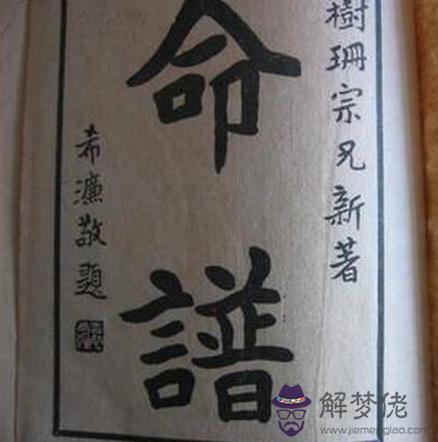 樹珊宗兄新著
命譜
希濂敬題
解梦佬
www.jiemenglao.com